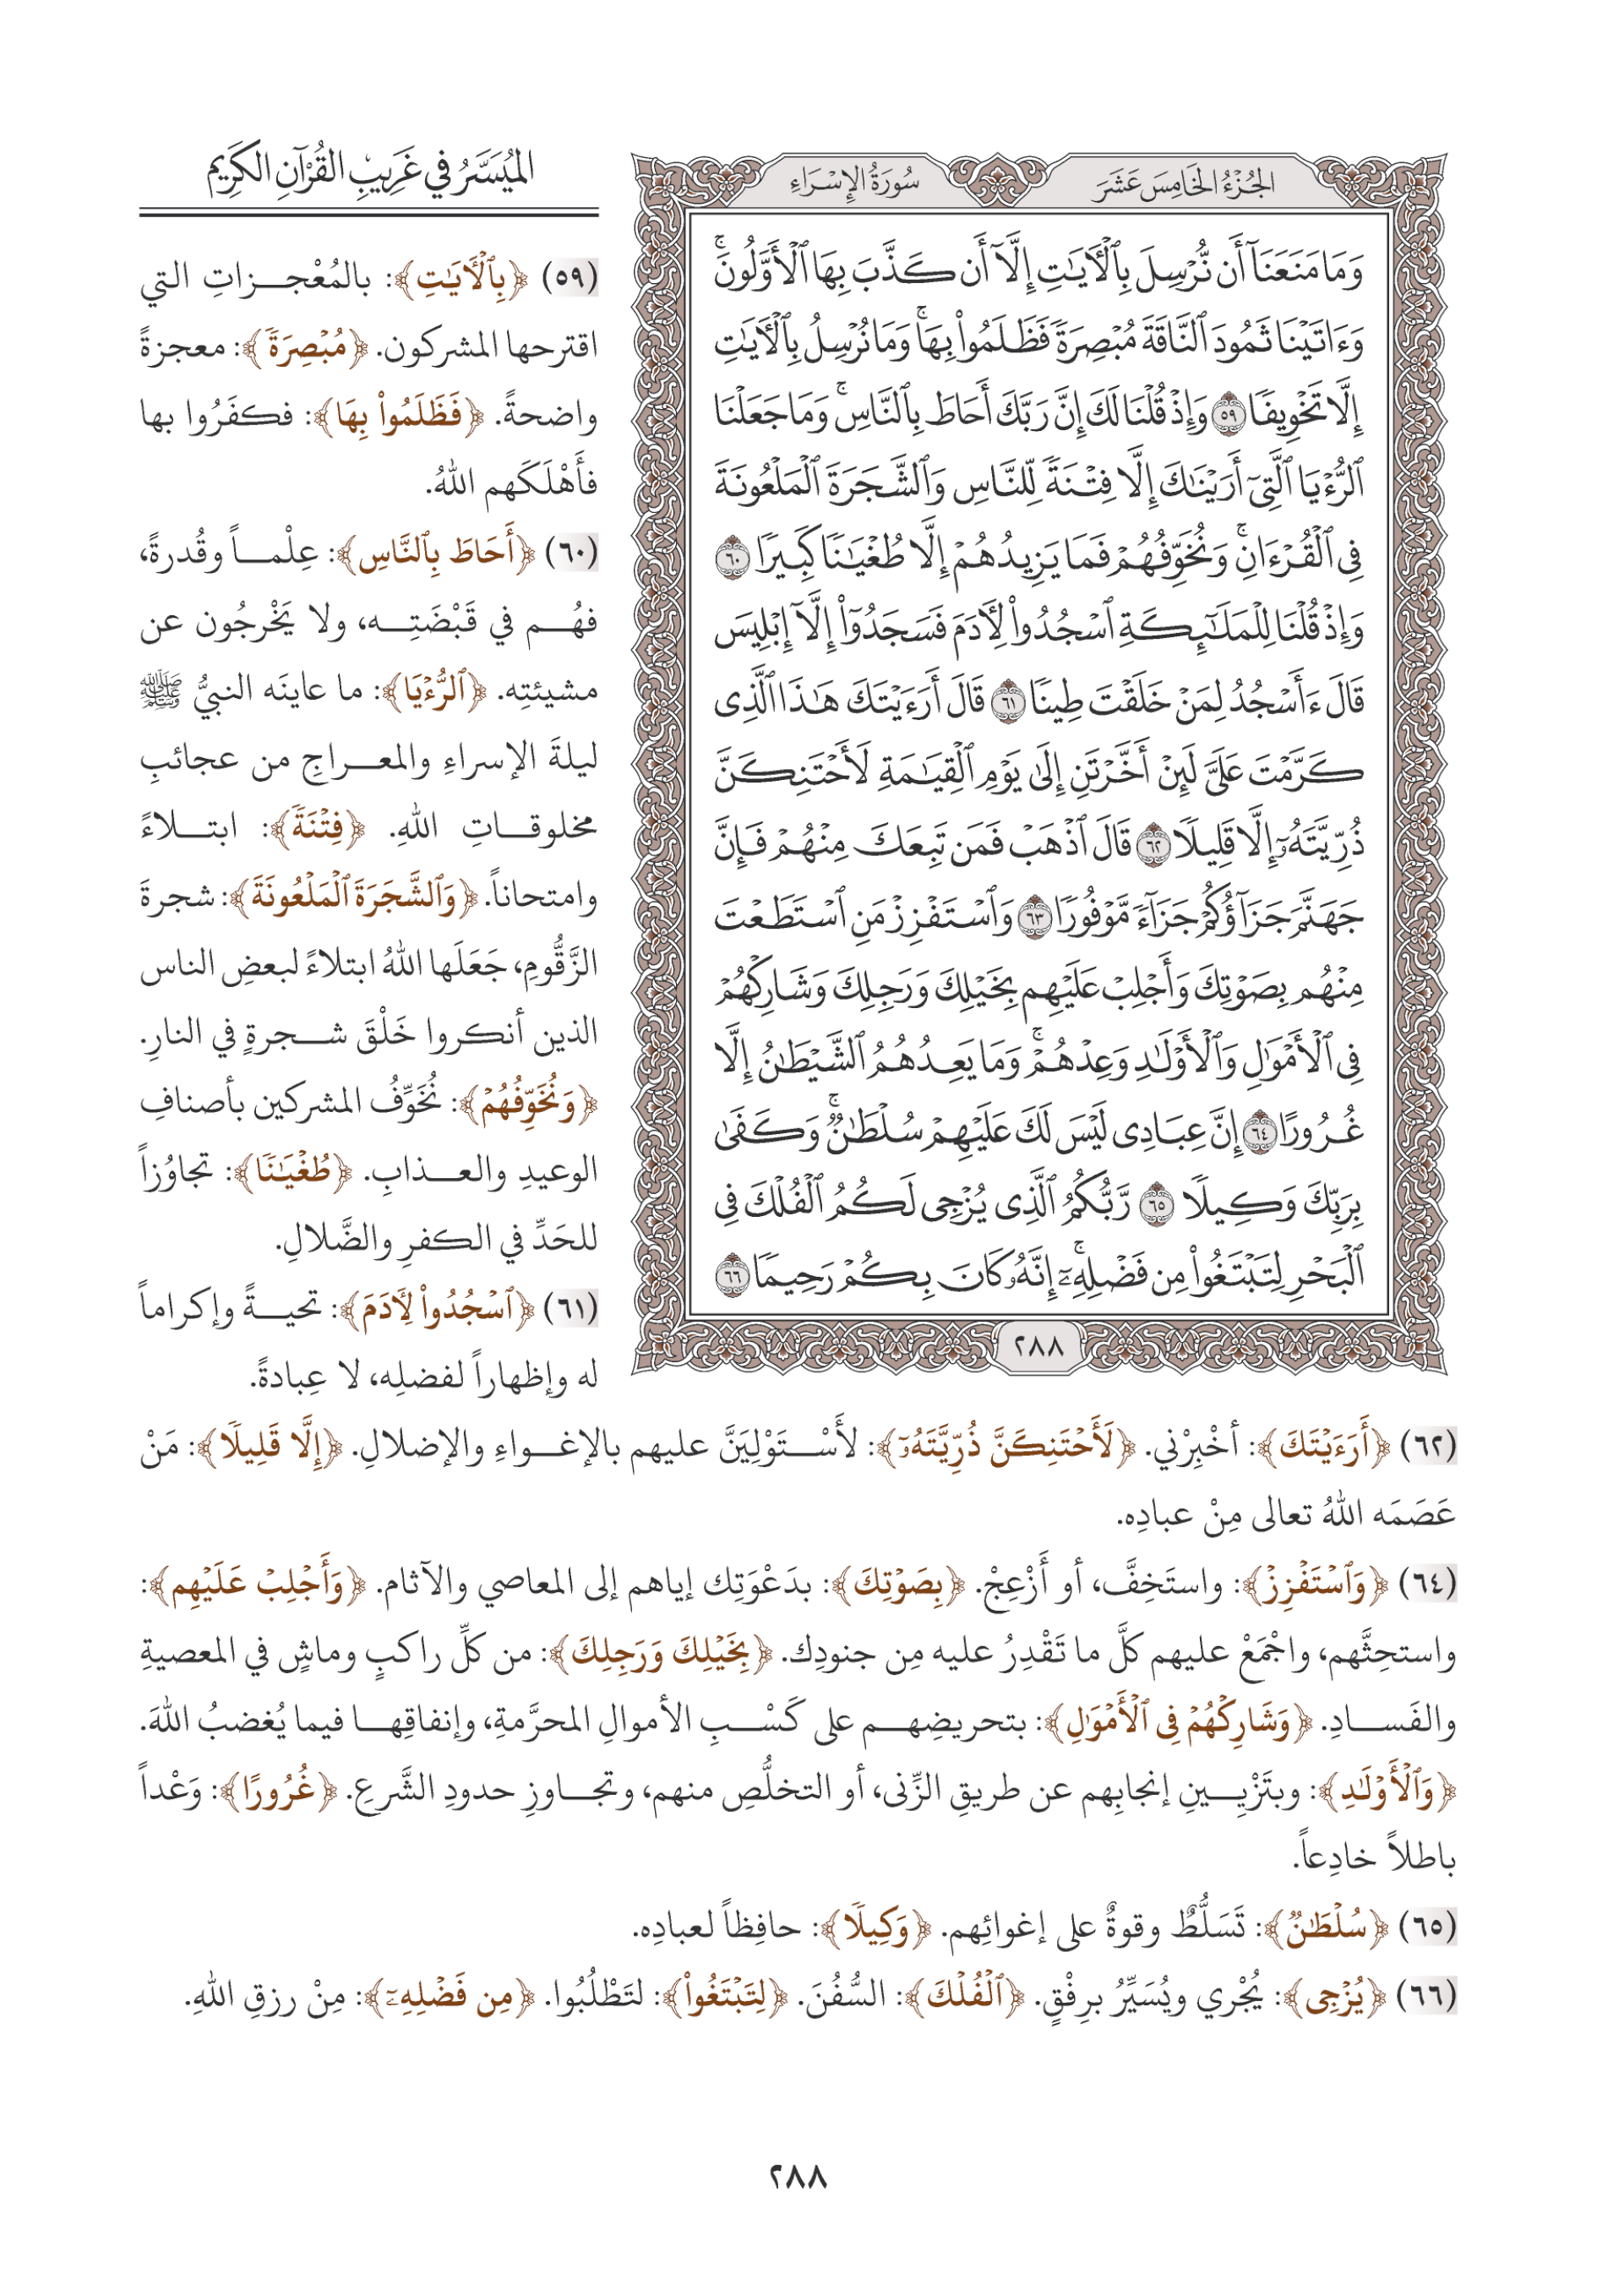 الجُزْءُ الخَامِسَ عَشَرَ
سُورَةُ الإِسْرَاءِ
وَمَا مَنَعَنَآ أَن نُّرْسِلَ بِٱلْأٓيَٰتِ إِلَّآ أَن كَذَّبَ بِهَا ٱلْأَوَّلُونَۚ
وَءَاتَيْنَا ثَمُودَ ٱلنَّاقَةَ مُبْصِرَةً فَظَلَمُوا۟ بِهَاۚ وَمَا نُرْسِلُ بِٱلْأٓيَٰتِ
إِلَّا تَخْوِيفًا ٥٩ وَإِذْ قُلْنَا لَكَ إِنَّ رَبَّكَ أَحَاطَ بِٱلنَّاسِۚ وَمَا جَعَلْنَا
ٱلرُّءْيَا ٱلَّتِىٓ أَرَيْنَٰكَ إِلَّا فِتْنَةً لِّلنَّاسِ وَٱلشَّجَرَةَ ٱلْمَلْعُونَةَ
فِى ٱلْقُرْءَانِۚ وَنُخَوِّفُهُمْ فَمَا يَزِيدُهُمْ إِلَّا طُغْيَٰنًا كَبِيرًا ٦٠
وَإِذْ قُلْنَا لِلْمَلَٰٓئِكَةِ ٱسْجُدُوا۟ لِأٓدَمَ فَسَجَدُوٓا۟ إِلَّآ إِبْلِيسَ
قَالَ ءَأَسْجُدُ لِمَنْ خَلَقْتَ طِينًا ٦١ قَالَ أَرَءَيْتَكَ هَٰذَا ٱلَّذِى
كَرَّمْتَ عَلَىَّ لَئِنْ أَخَّرْتَنِ إِلَىٰ يَوْمِ ٱلْقِيَٰمَةِ لَأَحْتَنِكَنَّ
ذُرِّيَّتَهُۥٓ إِلَّا قَلِيلًا ٦٢ قَالَ ٱذْهَبْ فَمَن تَبِعَكَ مِنْهُمْ فَإِنَّ
جَهَنَّمَ جَزَآؤُكُمْ جَزَآءً مَّوْفُورًا ٦٣ وَٱسْتَفْزِزْ مَنِ ٱسْتَطَعْتَ
مِنْهُم بِصَوْتِكَ وَأَجْلِبْ عَلَيْهِم بِخَيْلِكَ وَرَجِلِكَ وَشَارِكْهُمْ
فِى ٱلْأَمْوَٰلِ وَٱلْأَوْلَٰدِ وَعِدْهُمْۚ وَمَا يَعِدُهُمُ ٱلشَّيْطَٰنُ إِلَّا
غُرُورًا ٦٤ إِنَّ عِبَادِى لَيْسَ لَكَ عَلَيْهِمْ سُلْطَٰنٌۚ وَكَفَىٰ
بِرَبِّكَ وَكِيلًا ٦٥ رَّبُّكُمُ ٱلَّذِى يُزْجِى لَكُمُ ٱلْفُلْكَ فِى
ٱلْبَحْرِ لِتَبْتَغُوا۟ مِن فَضْلِهِۦٓۚ إِنَّهُۥ كَانَ بِكُمْ رَحِيمًا ٦٦
٢٨٨
المُيَسَّرُ في غَرِيبِ القُرْآنِ الكَرِيم
(٥٩) ﴿بِٱلْأٓيَٰتِ﴾: بالمُعْجِزاتِ التي
اقترحها المشركون. ﴿مُبْصِرَةً﴾: معجزةً
واضحةً. ﴿فَظَلَمُوا۟ بِهَا﴾: فكفَرُوا بها
فأَهْلَكَهم اللهُ.
(٦٠) ﴿أَحَاطَ بِٱلنَّاسِ﴾: عِلْماً وقُدرةً،
فهُم في قَبْضَتِه، ولا يَخْرجُون عن
مشيئتِه. ﴿ٱلرُّءْيَا﴾: ما عاينَه النبيُّ ﷺ
ليلةَ الإسراءِ والمعراجِ من عجائبِ
مخلوقاتِ اللهِ. ﴿فِتْنَةً﴾: ابتلاءً
وامتحاناً. ﴿وَٱلشَّجَرَةَ ٱلْمَلْعُونَةَ﴾: شجرةَ
الزَّقُّومِ، جَعَلَها اللهُ ابتلاءً لبعضِ الناس
الذين أنكروا خَلْقَ شجرةٍ في النارِ.
﴿وَنُخَوِّفُهُمْ﴾: نُخَوِّفُ المشركين بأصنافِ
الوعيدِ والعذابِ. ﴿طُغْيَٰنًا﴾: تجاوُزاً
للحَدِّ في الكفرِ والضَّلالِ.
(٦١) ﴿ٱسْجُدُوا۟ لِأٓدَمَ﴾: تحيةً وإكراماً
له وإظهاراً لفضلِه، لا عِبادةً.
(٦٢) ﴿أَرَءَيْتَكَ﴾: أخْبِرْني. ﴿لَأَحْتَنِكَنَّ ذُرِّيَّتَهُۥٓ﴾: لأَسْتَوْلِيَنَّ عليهم بالإغواءِ والإضلالِ. ﴿إِلَّا قَلِيلًا﴾: مَنْ
عَصَمَه اللهُ تعالى مِنْ عبادِه.
(٦٤) ﴿وَٱسْتَفْزِزْ﴾: واستَخِفَّ، أو أَزْعِجْ. ﴿بِصَوْتِكَ﴾: بدَعْوَتِك إياهم إلى المعاصي والآثام. ﴿وَأَجْلِبْ عَلَيْهِم﴾:
واستحِثَّهم، واجْمَعْ عليهم كلَّ ما تَقْدِرُ عليه مِن جنودِك. ﴿بِخَيْلِكَ وَرَجِلِكَ﴾: من كلِّ راكبٍ وماشٍ في المعصيةِ
والفَسادِ. ﴿وَشَارِكْهُمْ فِى ٱلْأَمْوَٰلِ﴾: بتحريضِهم على كَسْبِ الأموالِ المحرَّمةِ، وإنفاقِها فيما يُغضبُ اللهَ.
﴿وَٱلْأَوْلَٰدِ﴾: وبتَزْيِينِ إنجابِهم عن طريقِ الزِّنى، أو التخلُّصِ منهم، وتجاوزِ حدودِ الشَّرعِ. ﴿غُرُورًا﴾: وَعْداً
باطلاً خادِعاً.
(٦٥) ﴿سُلْطَٰنٌ﴾: تَسَلُّطٌ وقوةٌ على إغوائِهم. ﴿وَكِيلًا﴾: حافِظاً لعبادِه.
(٦٦) ﴿يُزْجِى﴾: يُجْري ويُسَيِّرُ برِفْقٍ. ﴿ٱلْفُلْكَ﴾: السُّفُنَ. ﴿لِتَبْتَغُوا۟﴾: لتَطْلُبُوا. ﴿مِن فَضْلِهِۦٓ﴾: مِنْ رزقِ اللهِ.
٢٨٨